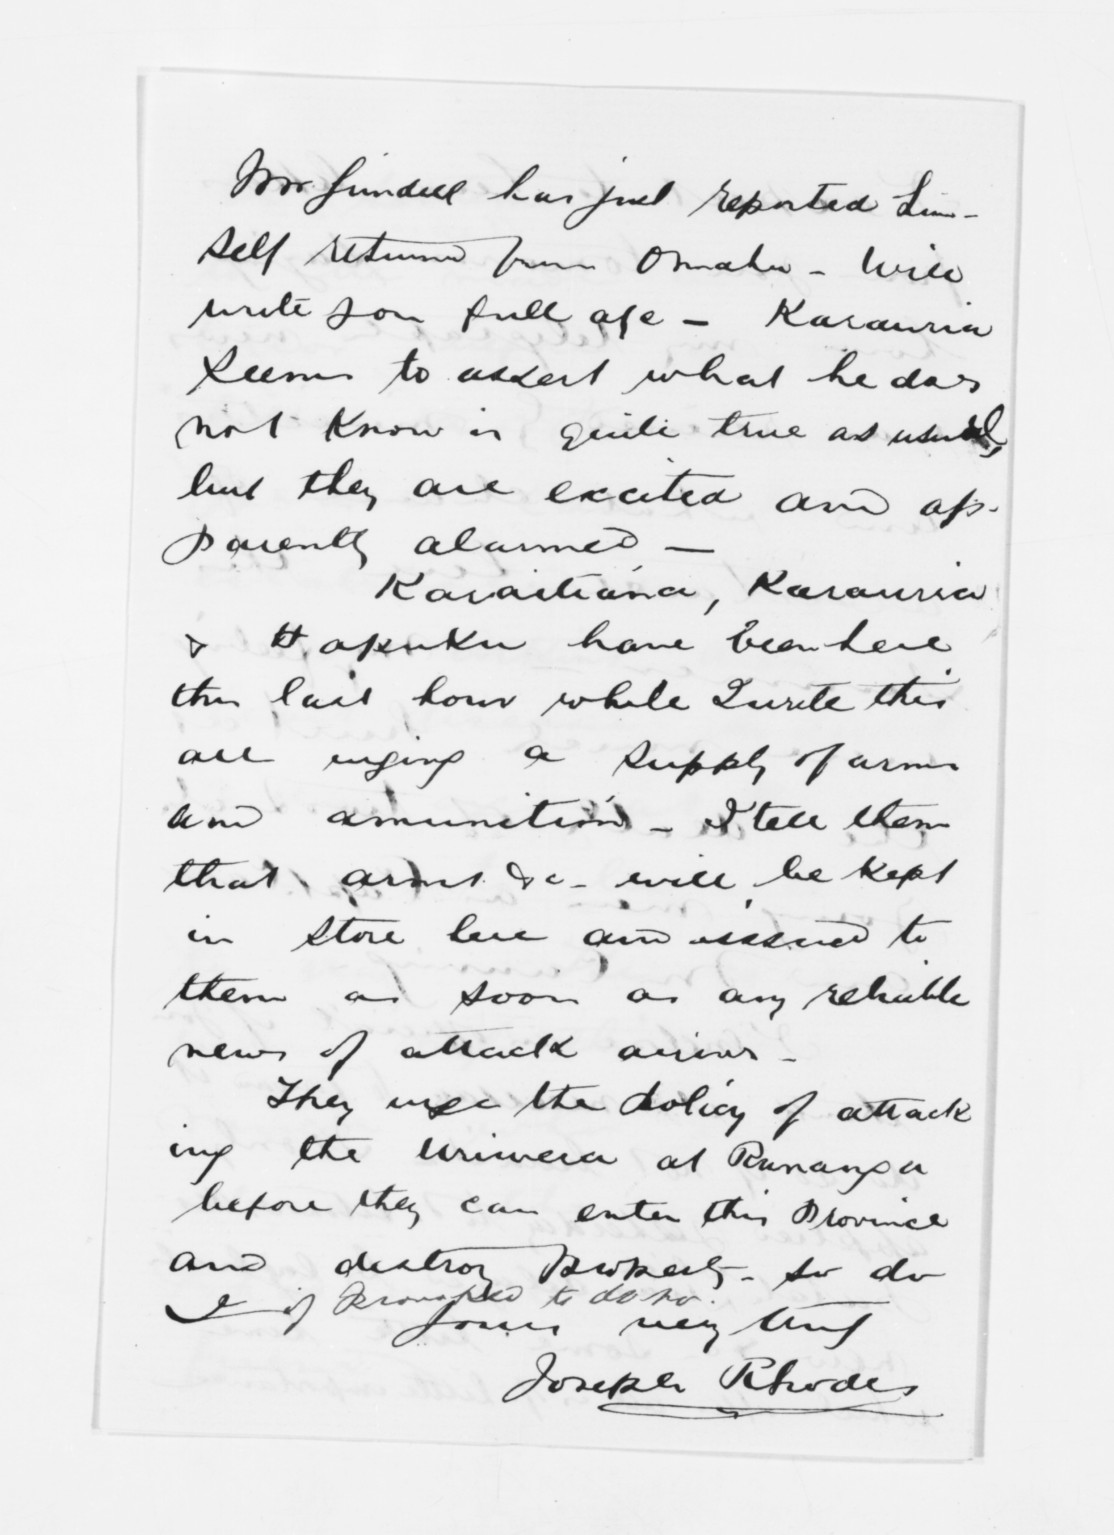 Mr Grindell has just reported him-
self returned from Omahu - Will
write you full
Karauria
seems to assert what he does
not Know is quite true as usual,
but they are excited and ap-
parently alarmed -
Karaitiana, Karauria
& Hapuku have been here
this last hour while I write this
all urging a supply of arms
and amunition - I tell them
that arms &c - will be kept
in store here and issued to
them as soon as any reliable
news of attack arrives -
They urge the policy of attack
ing the Uriwera at Runanga
before they can enter this Province
and destroy property - so do
I if prompted to do so.
Yours very truly
Joseph Rhodes